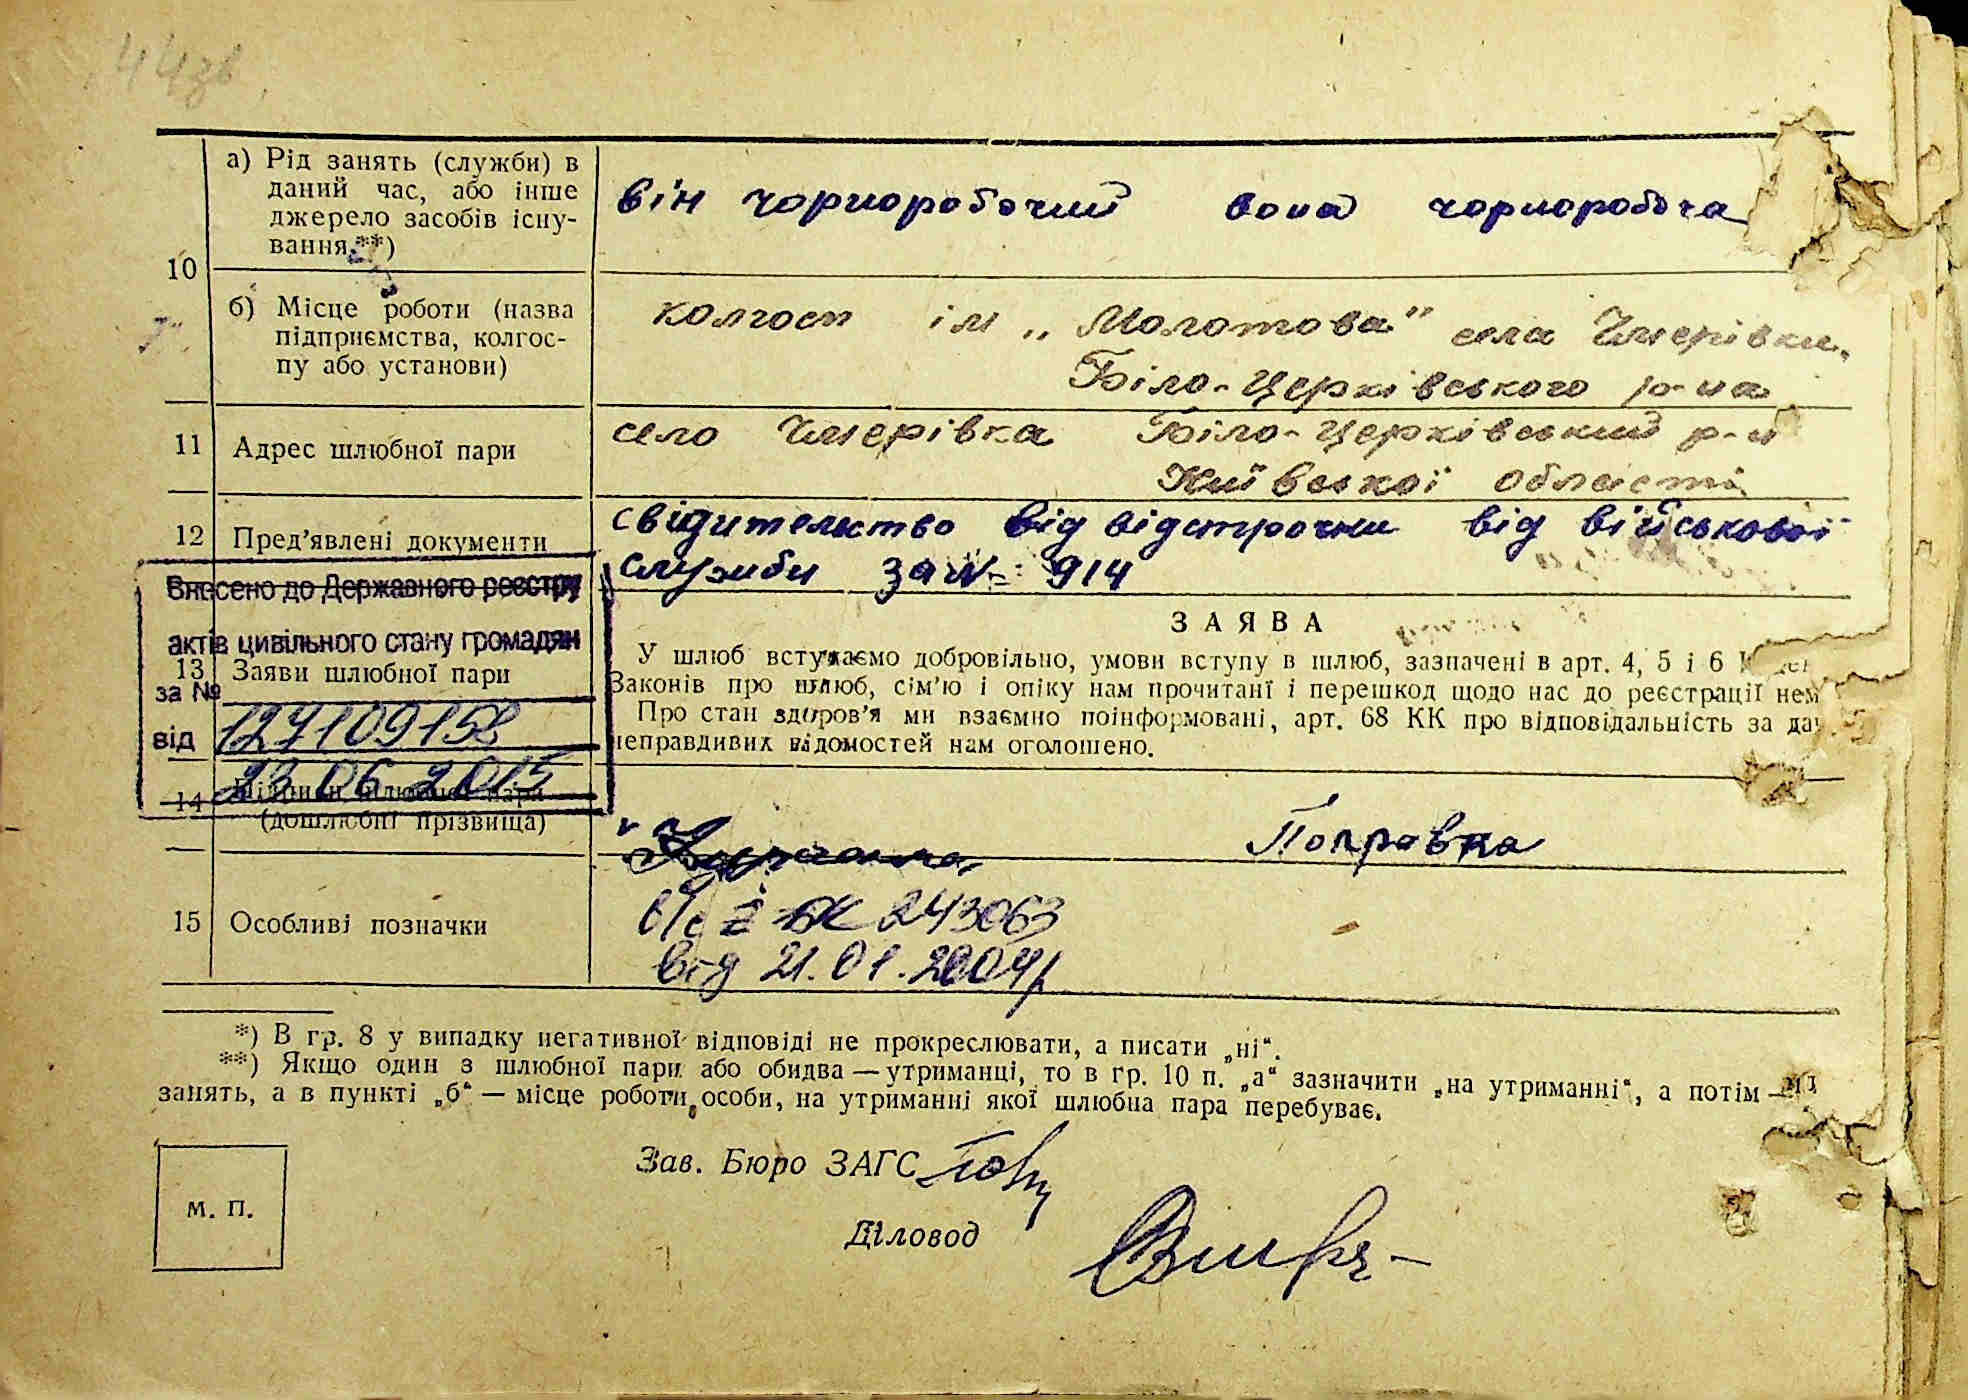 44зв
10
а) Рід занять (служби) в
даний час, або інше
джерело засобів існу-
вання.**)
він чорноробочий вона чорноробоча
б) Місце роботи (назва
підприємства, колгос-
пу або установи)
колгосп ім „Молотова" села Чмерівки,
Біло-Церківського р-на
11 Адрес шлюбної пари
село Чмерівка Біло-Церківський р-н
Київської області
12 Пред'явлені документи
свідительство від відстрочки від військової
служби за № 914
Внесено до Державного реєстру
актів цивільного стану громадян
за №
127109158
від
23.06.2015
13 Заяви шлюбної пари
ЗАЯВА
У шлюб вступаємо добровільно, умови вступу в шлюб, зазначені в арт. 4, 5 і 6
Законів про шлюб, сім'ю і опіку нам прочитані і перешкод щодо нас до реєстрації нем
Про стан здоров'я ми взаємно поінформовані, арт. 68 КК про відповідальність за да
неправдивих відомостей нам оголошено.
14 Підписи шлюбної пари
(дошлюбні прізвища)
Поправка
15 Особливі позначки
БК 243063
від 21.01.2004р
*) В гр. 8 у випадку негативної відповіді не прокреслювати, а писати „ні“.
**) Якщо один з шлюбної пари або обидва — утриманці, то в гр. 10 п. „а“ зазначити „на утриманні“, а потім —
занять, а в пункті „б“ — місце роботи особи, на утриманні якої шлюбна пара перебуває.
Зав. Бюро ЗАГС
Діловод
м. п.